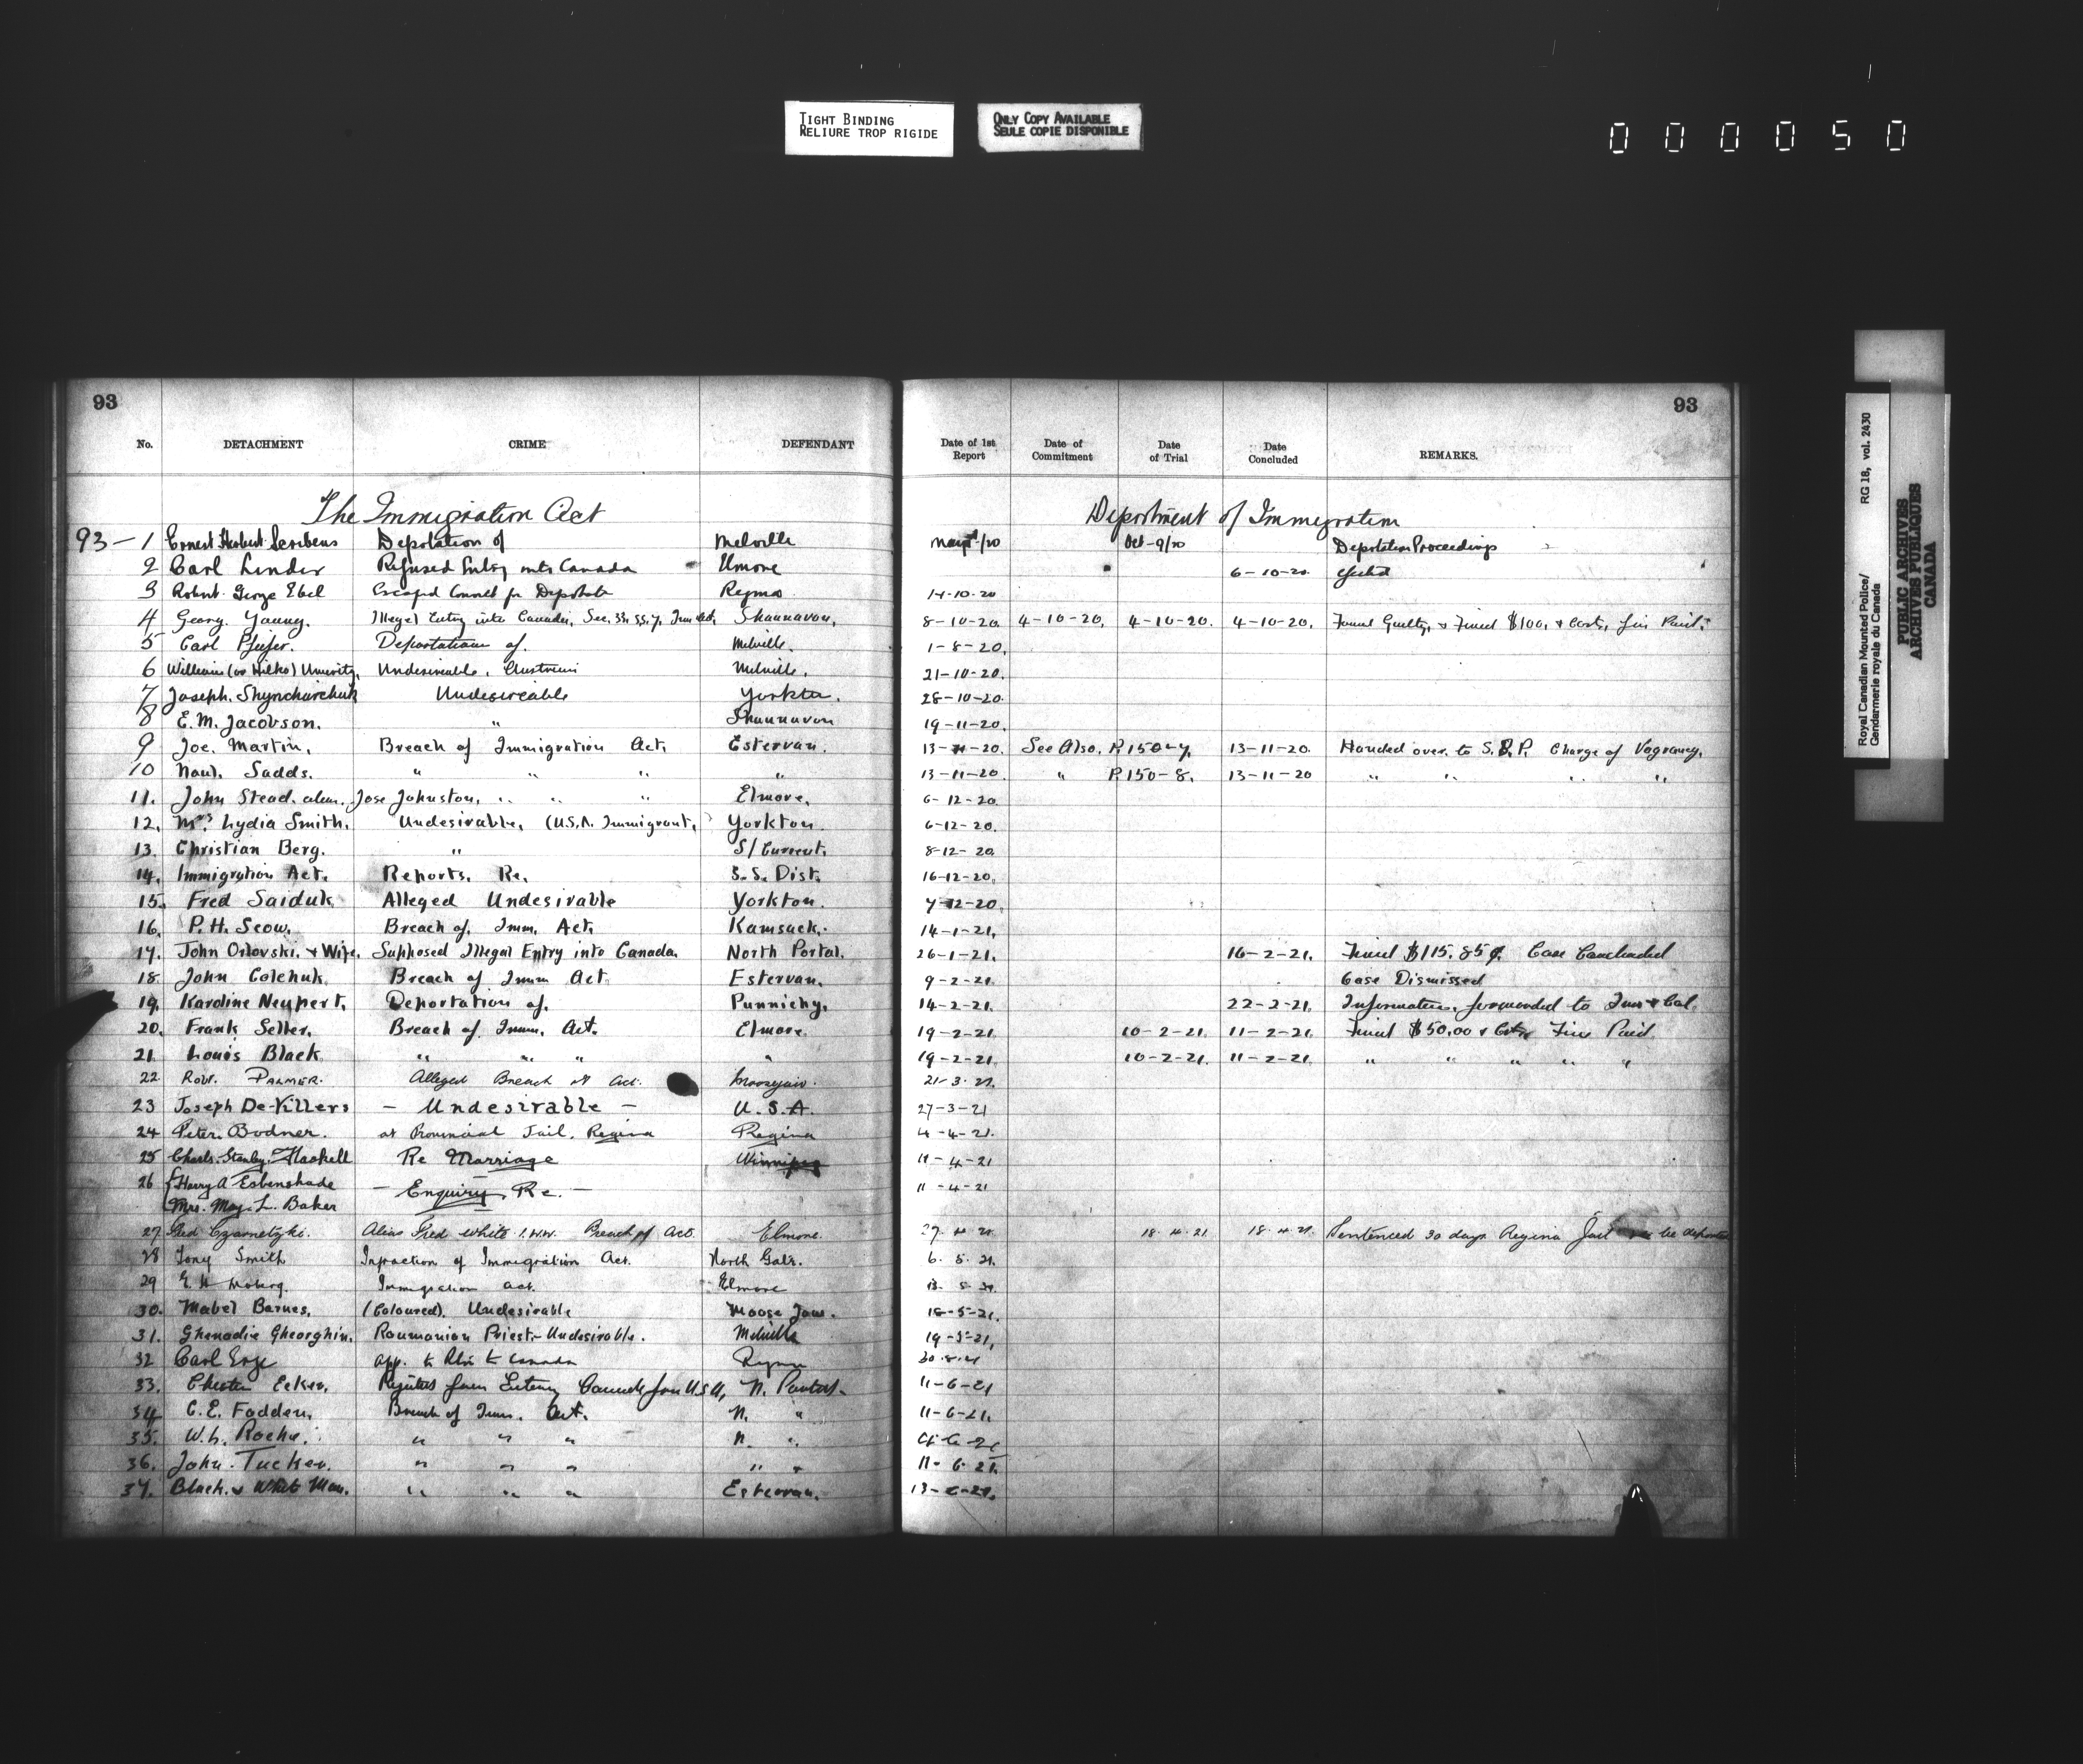 TIGHT BINDING
RELIURE TROP RIGIDE
ONLY COPY AVAILABLE
SEULE COPIE DISPONIBLE
000050
93
93
No. DETACHMENT CRIME DEFENDANT Date of 1st Report Date of Commitment Date of Trial Date Concluded REMARKS.
The Immigration Act Department of Immigration
93-1 Ernest Herbert Scribens Depotation of Melville /20 Oct-9/20 Deportation Proceedings
2 Carl Linder Refused Entry into Canada Elmore 6-10-20
3 Robert George Ebel Escaped for Deportate Regina 14-10-20
4 Georg. Young. Illegal Entry into Canada, Sec. 33, ss, 7, Imm Act, Shaunavon, 8-10-20. 4-10-20, 4-10-20. 4-10-20, Found Guilty, & Fined $100, & Costs, Fine Paid.
5 Carl Pfeifer. Deportation of. Melville. 1-8-20,
6 William (or Hilko) Undesireable, Austrian Melville. 21-10-20.
7 Joseph. Shyncharchuk Undesireable Yorkton. 28-10-20.
8 E.M. Jacobson. " Shaunavon 19-11-20.
9 Joe. Martin, Breach of Immigration Act, Estervan. 13-11-20. See Also, P.150-7, 13-11-20. Handed over to S.P.P. Charge of Vagrancy.
10 Sadds. " " " " 13-11-20. " P.150-8. 13-11-20 " " " "
11. John Stead. alias. Jose Johnston, " " " Elmore, 6-12-20.
12. Mrs. Lydia Smith. Undesirable, (U.S.A. Immigrant,) Yorkton. 6-12-20.
13. Christian Berg. " S/Current. 8-12-20.
14. Immigration Act. Reports. Re. S.S. Dist. 16-12-20.
15. Fred Saiduk Alleged Undesirable Yorkton. 7-12-20.
16. P.H. Scow. Breach of. Imm. Act, Kamsack. 14-1-21,
17. John Orlovski. & Wife, Supposed Illegal Entry into Canada. North Portal. 26-1-21. 16-2-21. Fined $115.85¢ Case Concluded
18. John Colchuk. Breach of Imm Act Estervan. 9-2-21. Case Dismissed
19. Karoline Neupert, Deportation of. Punnichy. 14-2-21. 22-2-21. Information, forwarded to Imm & Col.
20. Frank Seller. Breach of Imm. Act. Elmore. 19-2-21. 10-2-21. 11-2-21. Fined $50.00 & Costs Fine Paid.
21. Louis Black " " " " 19-2-21. 10-2-21. 11-2-21. " " " " "
22. Robt. PALMER. Alleged Breach of Act. Moosejaw. 21-3-21.
23 Joseph De-Villers - Undesirable - U.S.A. 27-3-21
24 Peter. Bodner. at Provincial Jail, Regina Regina 4-4-21.
25 Charls. Stanley. Haskell Re Marriage Winnipeg 11-4-21
26 {Harry A Esbenshade - Enquiry Re. - 11-4-21
Mrs. May. L. Baker
27 Fred Czarnetzki. Alias Fred White I.W.W. Breach of Act. Elmore. 27. 4. 21. 18. 4. 21 18. 4. 21. Sentenced 30 days Regina Jail be deported
28 Tony Smith Infraction of Immigration Act. North Gate. 6. 5. 21.
29 E. Moberg. Immigration act. Elmore 13. 5. 21.
30. Mabel Barnes, (Coloured). Undesirable Moose Jaw. 18-5-21.
31. Ghenadie Gheorghin, Roumanian Priest- Undesirable. Melville 19-5-21,
32 Carl App. to to Canada Regina
33. Chester Ecker, Rejected from Entering Canada from U.S.A, N. Portal. 11-6-21
34 C.E. Fodden, Breach of Imm. Act. N. " 11-6-21.
35. W.L. Roche. " " " N. "
36. John. Tucker. " " " " " 11-6-21.
37. Black. & White Man. " " " Estervan. 13-6-21.
Royal Canadian Mounted Police/
Gendarmerie royale du Canada
RG 18, vol. 2430
PUBLIC ARCHIVES
ARCHIVES PUBLIQUES
CANADA